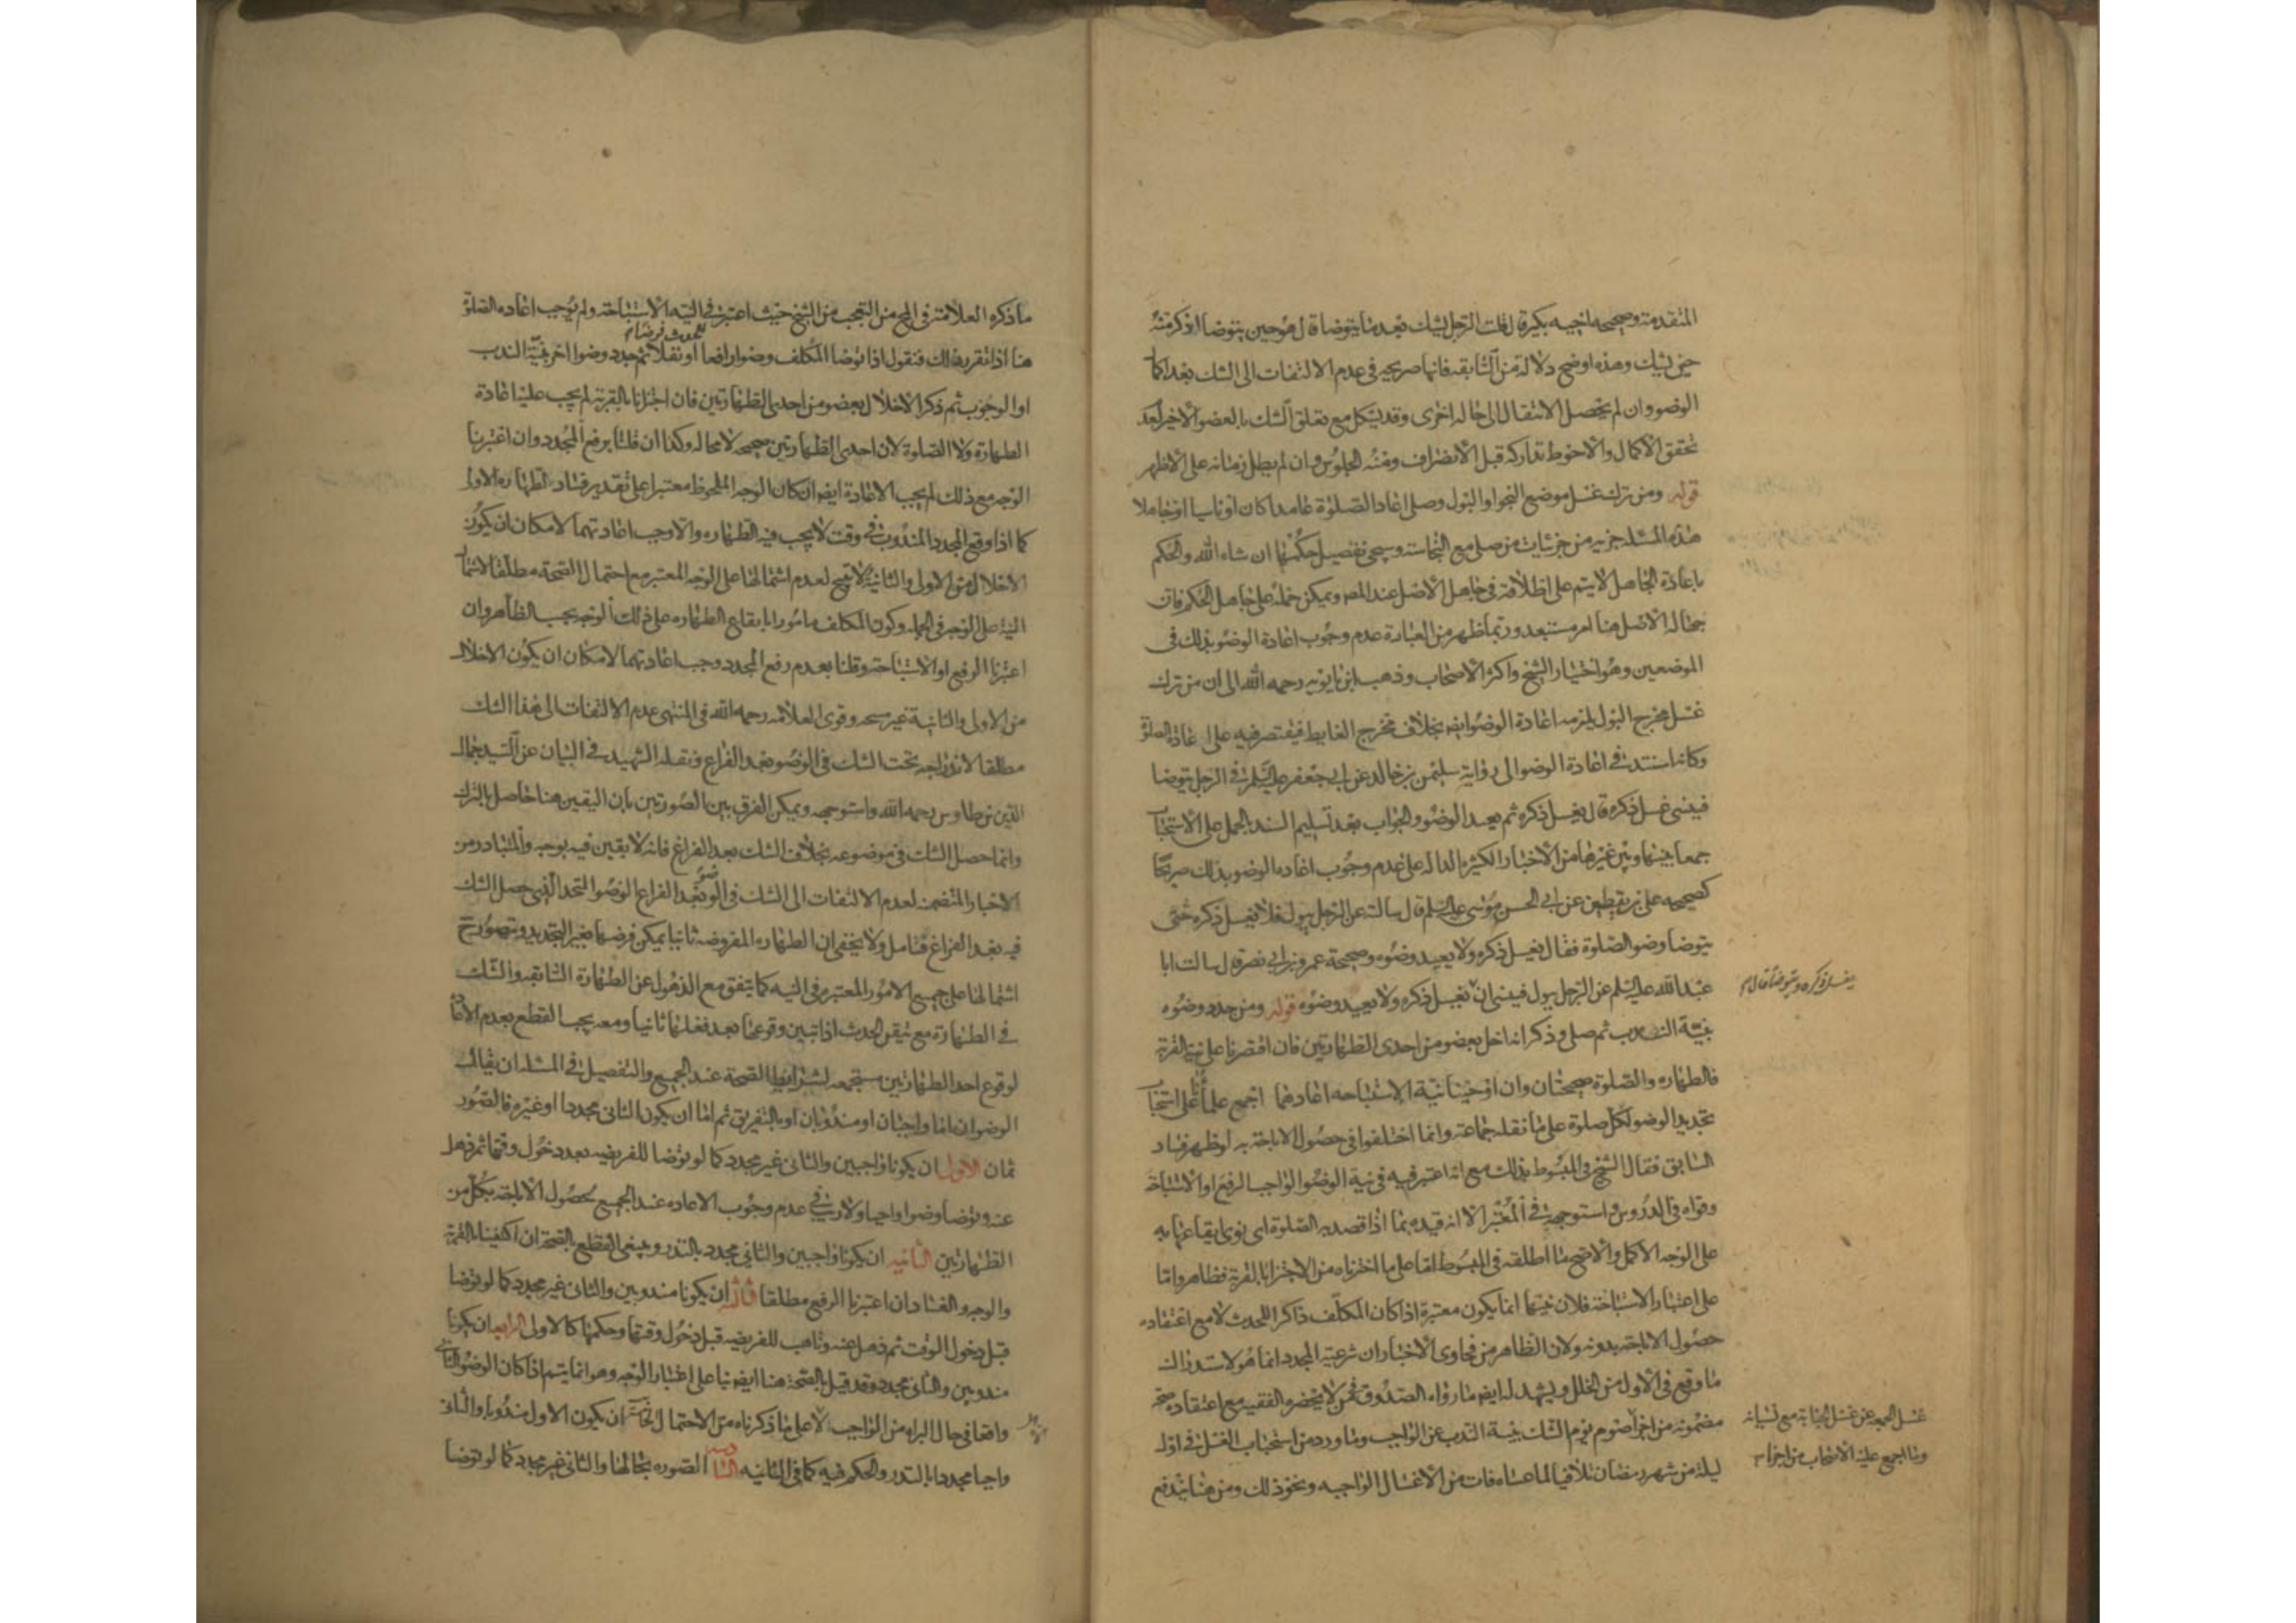 المتقدمة وصحيحه اخيه بكير قال قلت الرجل يشك بعد ما يتوضا قال هو حين يتوضا اذكر منه
حين يشك وهذه اوضح دلالة من السابقه فانها صريحه في عدم الالتفات الى الشك بعد اكما
الوضوء وان لم يحصل الانتقال الى حاله اخرى وقد يشكل مع تعلق الشك بالعضو الاخير لعد
تحقق الاكمال والاحوط تداركه قبل الانصراف ومنه الجلوس وان لم يطل زمانه على الاظهر
قوله ومن ترك غسل موضع النجو او البول وصلى اعاد الصلوة عامدا كان او ناسيا او جاهلا
هذه المسئله جزيه من جزئيات من صلى مع النجاسة وسيجى تفصيل حكمها ان شاء الله والحكم
باعادة الجاهل لا يتم على اطلاقه في جاهل الاصل عند المصـ ويمكن حمله على جاهل الحكم فان
جهالة الاصل هنا امر مستبعد وربما ظهر من العبارة عدم وجوب اعادة الوضوء بذلك في
الموضعين وهو اختيار الشيخ واكثر الاصحاب وذهب ابن بابويه رحمه الله الى ان من ترك
غسل مخرج البول يلزمه اعادة الوضوء ايضـ بخلاف مخرج الغايط فيقتصر فيه على اعادة الصلوة
وكانه استند في اعادة الوضوء الى رواية سليمن بن خالد عن ابي جعفر عليه السلم في الرجل يتوضا
فينسى غسل ذكره قال يغسل ذكره ثم يعيد الوضوء والجواب بعد تسليم السند الحمل على الاستحباب
جمعا بينها وبين غيرها من الاخبار الكثيرة الداله على عدم وجوب اعاده الوضوء بذلك صريحا
كصحيحه علي بن يقطين عن ابي الحسن موسى عليه السلم قال سالته عن الرجل يبول فلا يغسل ذكره حتى
يتوضا وضوء الصلوة فقال يغسل ذكره ولا يعيد وضوءه وصحيحة عمرو بن ابي نصر قال سالت ابا
عبد الله عليه السلم عن الرجل يبول فينسى ان يغسل ذكره ولا يعيد وضوءه قوله ومن جدد وضوءه
يغسل ذكره ويتوضا قال
بنية الندب ثم صلى وذكر انه اخل بعضو من احدى الطهارتين فان اقتصرنا على نية القربة
فالطهاره والصلوة صحيحتان وان اوجبنا نية الاستباحه اعادهما اجمع علماؤنا على استحباب
تجديد الوضوء لكل صلوة على ما نقله جماعة وانما اختلفوا في حصول الاباحة به لو ظهر فساد
السابق فقال الشيخ في المبسوط بذلك مع انه اعتبر فيه في نية الوضوء الواجب الرفع او الاستباحة
وقواه في الدروس واستوجهه في المعتبر الا انه قيده بما اذا قصد به الصلوة اى نوى ايقاعها به
على الوجه الاكمل والاصح ما اطلقه في المبسوط اما على ما اخترناه من الاجتزاء بالقربة فظاهر واما
على اعتبار الاستباحة فلان نيتها انما يكون معتبرة اذا كان المكلف ذاكرا للحدث لا مع اعتقاده
حصول الاباحة بدونه ولان الظاهر من فحاوى الاخبار ان شرعيه المجدد انما هو لاستدراك
ما وقع في الاول من الخلل ويشهد له ايضـ ما رواه الصدوق في من لا يحضره الفقيه مع اعتقاده صحه
مضمونه من اجزاء صوم يوم الشك بنية الندب عن الواجب وما ورد من استحباب الغسل في اول
غسل الجمعه عن غسل الجنابة مع نسيانه
وما اجمع عليه الاصحاب من اجزاء
ليلة من شهر رمضان تلافيا لما عساه فات من الاغسال الواجبه ونحو ذلك ومن هنا يندفع
ما ذكره العلامة في المخ من التعجب من الشيخ حيث اعتبر في النيه الاستباحة ولم يوجب اعاده الصلوة
هنا اذا تقرر ذلك فنقول اذا توضا المكلف وضوءا رافعا او نفلا ثم جدد وضوءا اخر بنية الندب
او الوجوب ثم ذكر الاخلال بعضو من احدى الطهارتين فان اجتزانا بالقربة لم يجب عليه اعادة
الطهارة ولا الصلوة لان احدى الطهارتين صحيحه لا محاله وكذا ان قلنا برفع المجدد وان اعتبرنا
الوجه مع ذلك لم يجب الاعادة ايضـ ان كان الوجه الملحوظ معتبرا على تقدير فساد الطهاره الاولى
كما اذا وقع المجدد المندوب في وقت لا يجب فيه الطهاره والا وجب اعادتهما لامكان ان يكون
الاخلال من الاولى والثانية لا تبيح لعدم اشتمالها على الوجه المعتبر مع احتمال الصحة مطلقا لاشتمال
النية على الوجه في الجملة وكون المكلف مامورا بايقاع الطهاره على ذلك الوجه بحسب الظاهر وان
اعتبرنا الرفع او الاستباحة وقلنا بعدم رفع المجدد وجب اعادتهما لامكان ان يكون الاخلال
من الاولى والثانية غير صحيحه وقوى العلامه رحمه الله في المنتهى عدم الالتفات الى هذا الشك
مطلقا لاندراجه تحت الشك في الوضوء بعد الفراغ ونقله الشهيد في البيان عن السيد جمال
الدين بن طاوس رحمه الله واستوجهه ويمكن الفرق بين الصورتين بان اليقين هنا حاصل بالترك
وانما حصل الشك في موضوعه بخلاف الشك بعد الفراغ فانه لا يقين فيه بوجه والمتبادر من
الاخبار المتضمنه لعدم الالتفات الى الشك في الوضوء بعد الفراغ الوضوء المتحد الذي حصل الشك
فيه بعد الفراغ فتامل ولا يخفى ان الطهاره المفروضه ثانيا يمكن فرضها بغير التجديد ويتصور ح
اشتمالها على جميع الامور المعتبره في النيه كما يتفق مع الذهول عن الطهارة السابقه والشك
في الطهارة مع تيقن الحدث اذا تبين وقوعها بعد فعلها ثانيا ومعه يجب القطع بعدم الاعادة
لوقوع احد الطهارتين مستجمعه لشرايط الصحة عند الجميع والتفصيل في المسئلة ان يقال
الوضوءان اما واجبان او مندوبان او بالتفريق ثم اما ان يكون الثاني مجددا او غيره فالصور
ثمان الاول ان يكونا واجبين والثاني غير مجدد كما لو توضا للفريضه بعد دخول وقتها ثم ذهل
عنه وتوضا وضوءا واجبا ولا ريب في عدم وجوب الاعاده عند الجميع لحصول الاباحة بكل من
الطهارتين الثانيه ان يكونا واجبين والثاني مجدد بالنذر وينبغي القطع بالصحة ان اكتفينا بالقربة
والوجه والفساد ان اعتبرنا الرفع مطلقا الثالثه ان يكونا مندوبين والثاني غير مجدد كما لو توضا
قبل دخول الوقت ثم ذهل عنه وتاهب للفريضه قبل دخول وقتها وحكمها كالاولى الرابعه ان يكونا
مندوبين والثاني مجدد وقد قيل بالصحة هنا ايضـ بناء على اعتبار الوجه وهو انما يتم اذا كان الوضوء الثاني
واقعا في حال البراءه من الواجب لا على ما ذكرناه من الاحتمال الخامسه ان يكون الاول مندوبا والثاني
واجبا مجددا بالنذر والحكم فيه كما في الثانيه السادسه الصوره بحالها والثاني غير مجدد كما لو توضا